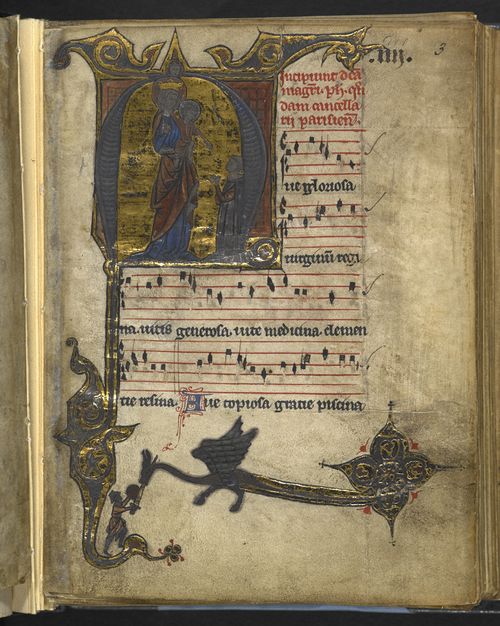 .iiij. 3
Incipiunt dca
magri. ph. qn
dam cancella
rii parisien.
ue gloriosa
uirginum regi
na. uitis generosa. uite medicina. clemen
cie resina. Aue copiosa gracie piscina